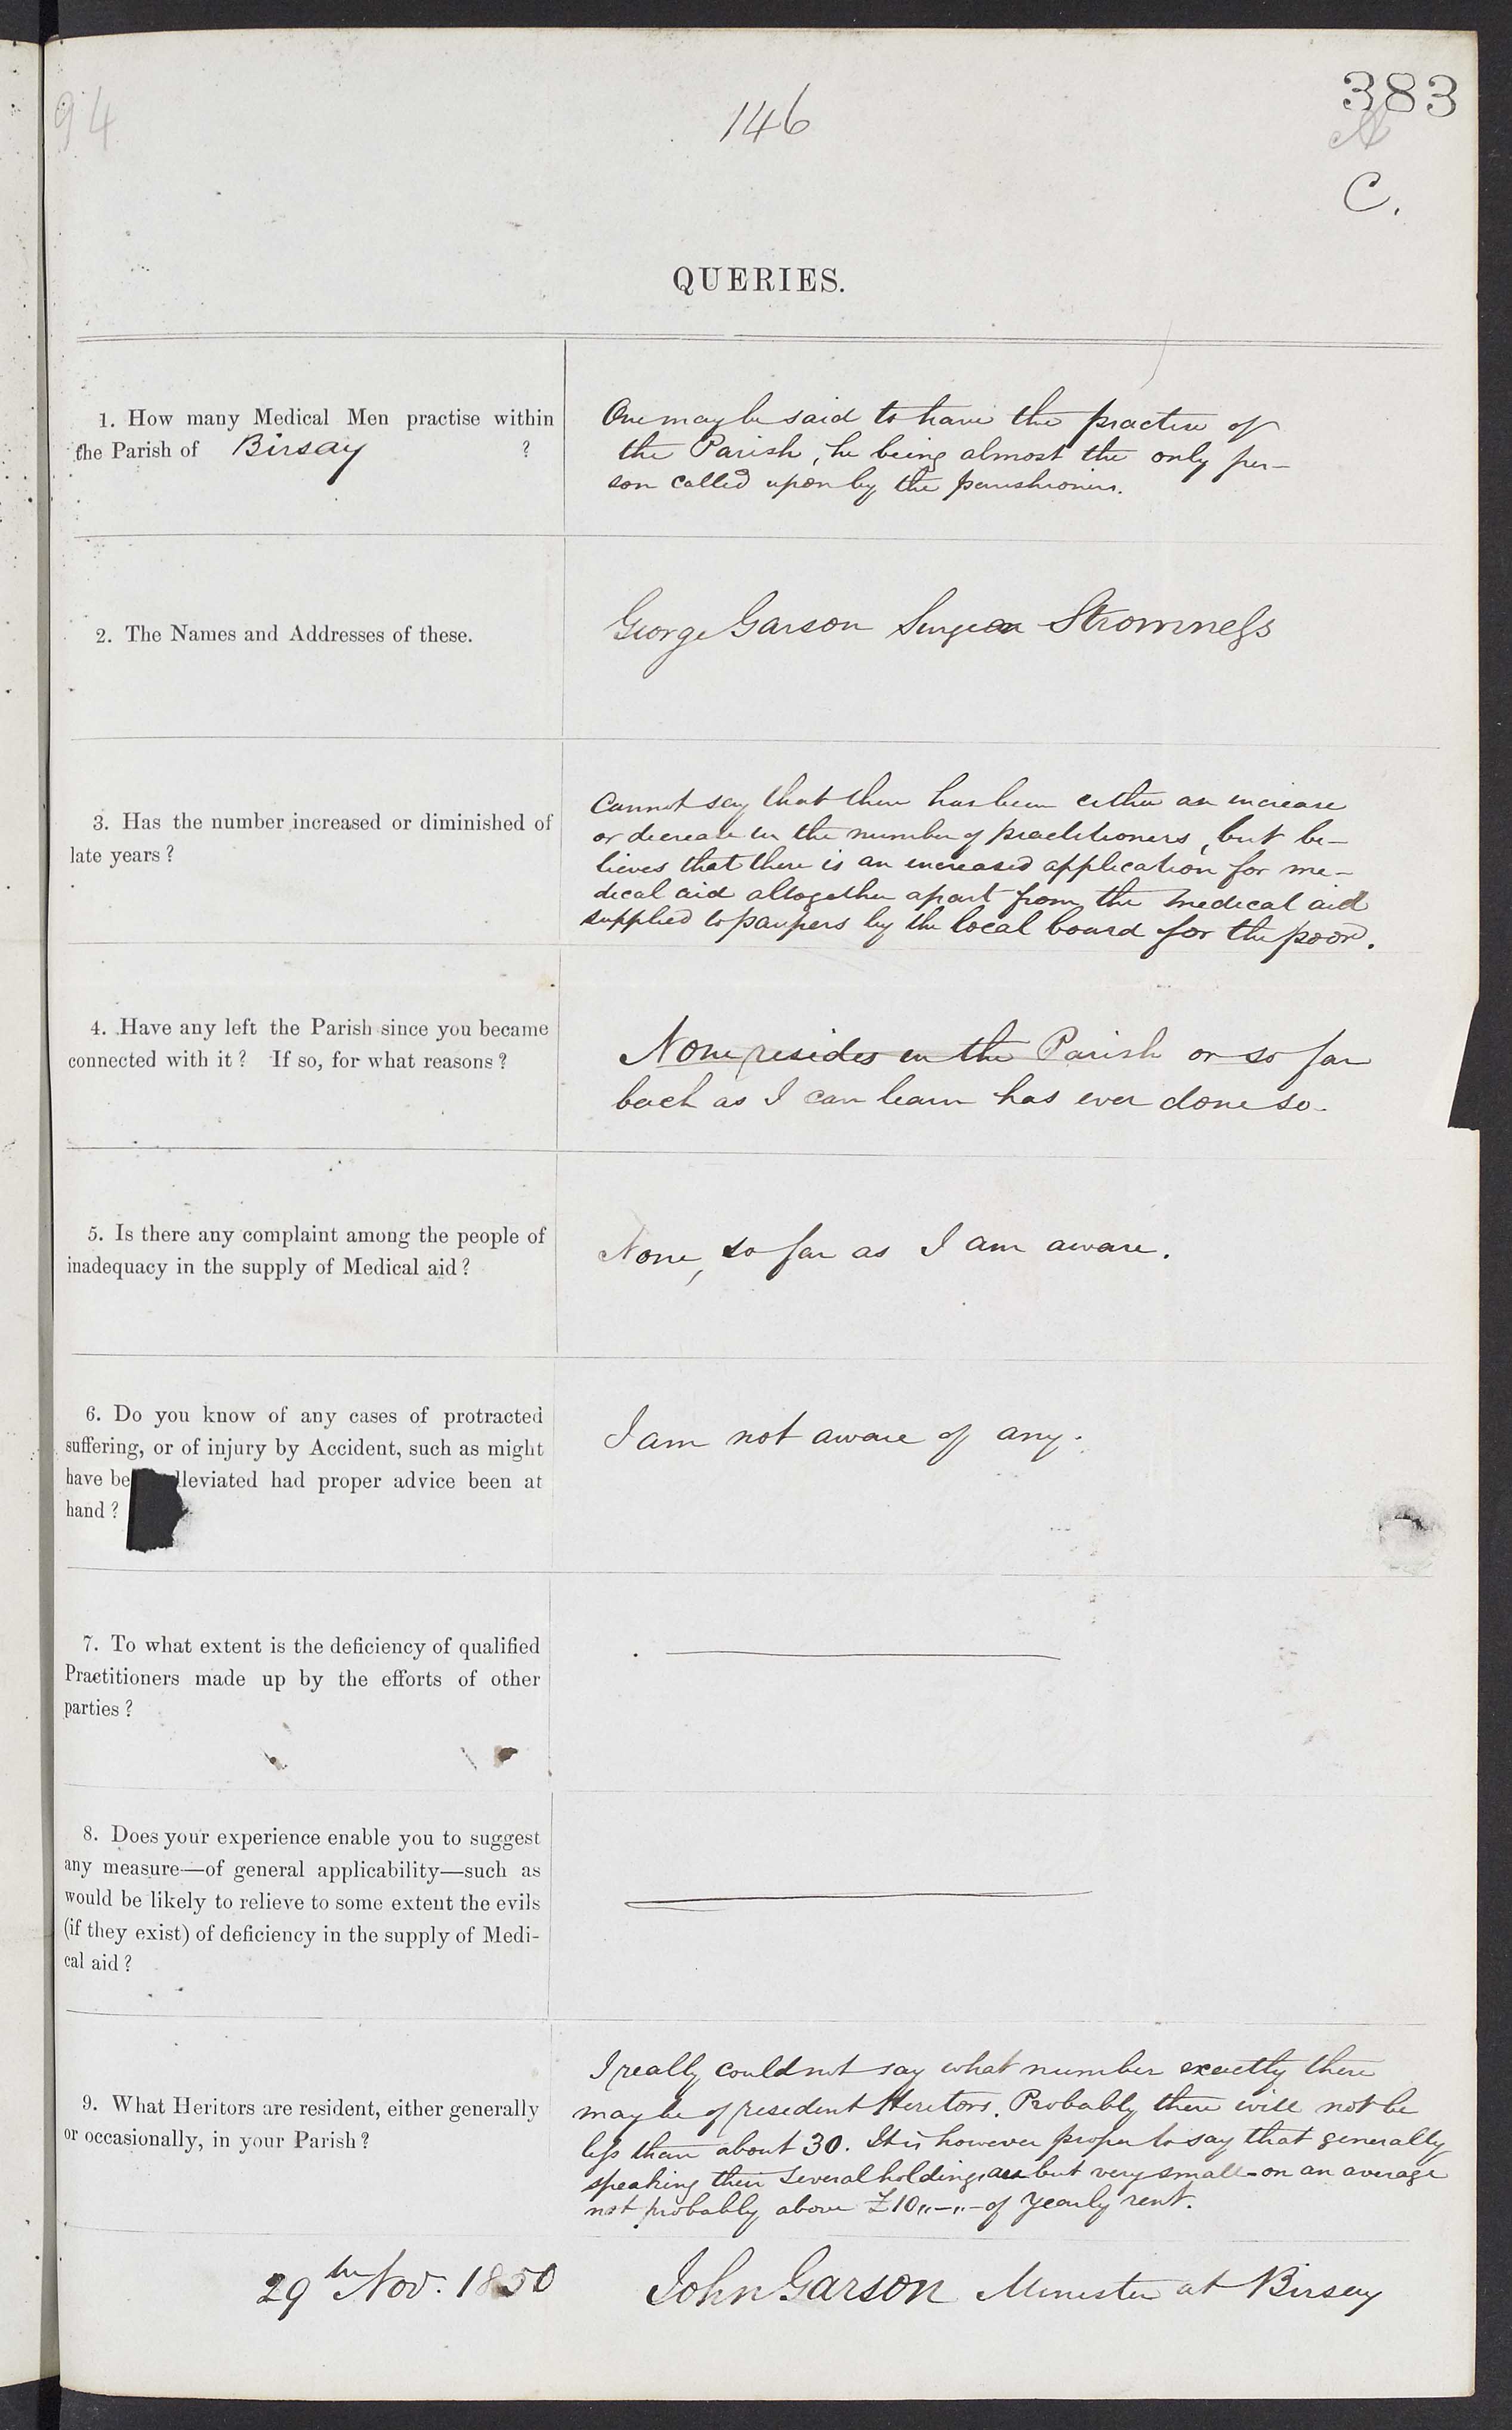 94
146
383
A
C.
QUERIES.
1. How many Medical Men practise within
the Parish of Birsay ?
One may be said to have the practice of
the Parish, he being almost the only per-
son called upon by the parishioners.
2. The Names and Addresses of these.
George Garson Surgeon Stromness
3. Has the number increased or diminished of
late years?
Cannot say that there has been either an increase
or decrease in the number of practitioners, but be-
lieves that there is an increased application for me-
dical aid altogether apart from the medical aid
supplied to paupers by the local board for the poor.
4. Have any left the Parish since you became
connected with it? If so, for what reasons?
None resides in the Parish or so far
back as I can learn has ever done so.
5. Is there any complaint among the people of
inadequacy in the supply of Medical aid?
None, so far as I am aware.
6. Do you know of any cases of protracted
suffering, or of injury by Accident, such as might
have be lleviated had proper advice been at
hand?
I am not aware of any.
7. To what extent is the deficiency of qualified
Practitioners made up by the efforts of other
parties?
8. Does your experience enable you to suggest
any measure—of general applicability—such as
would be likely to relieve to some extent the evils
(if they exist) of deficiency in the supply of Medi-
cal aid?
9. What Heritors are resident, either generally
or occasionally, in your Parish?
I really could not say what number exactly there
may be of resident Heritors. Probably there will not be
less than about 30. It is however proper to say that generally
speaking their several holdings are but very small - on an average
not probably above £10,,-,,- of yearly rent.
29th Nov. 1850
John Garson Minister at Birsay